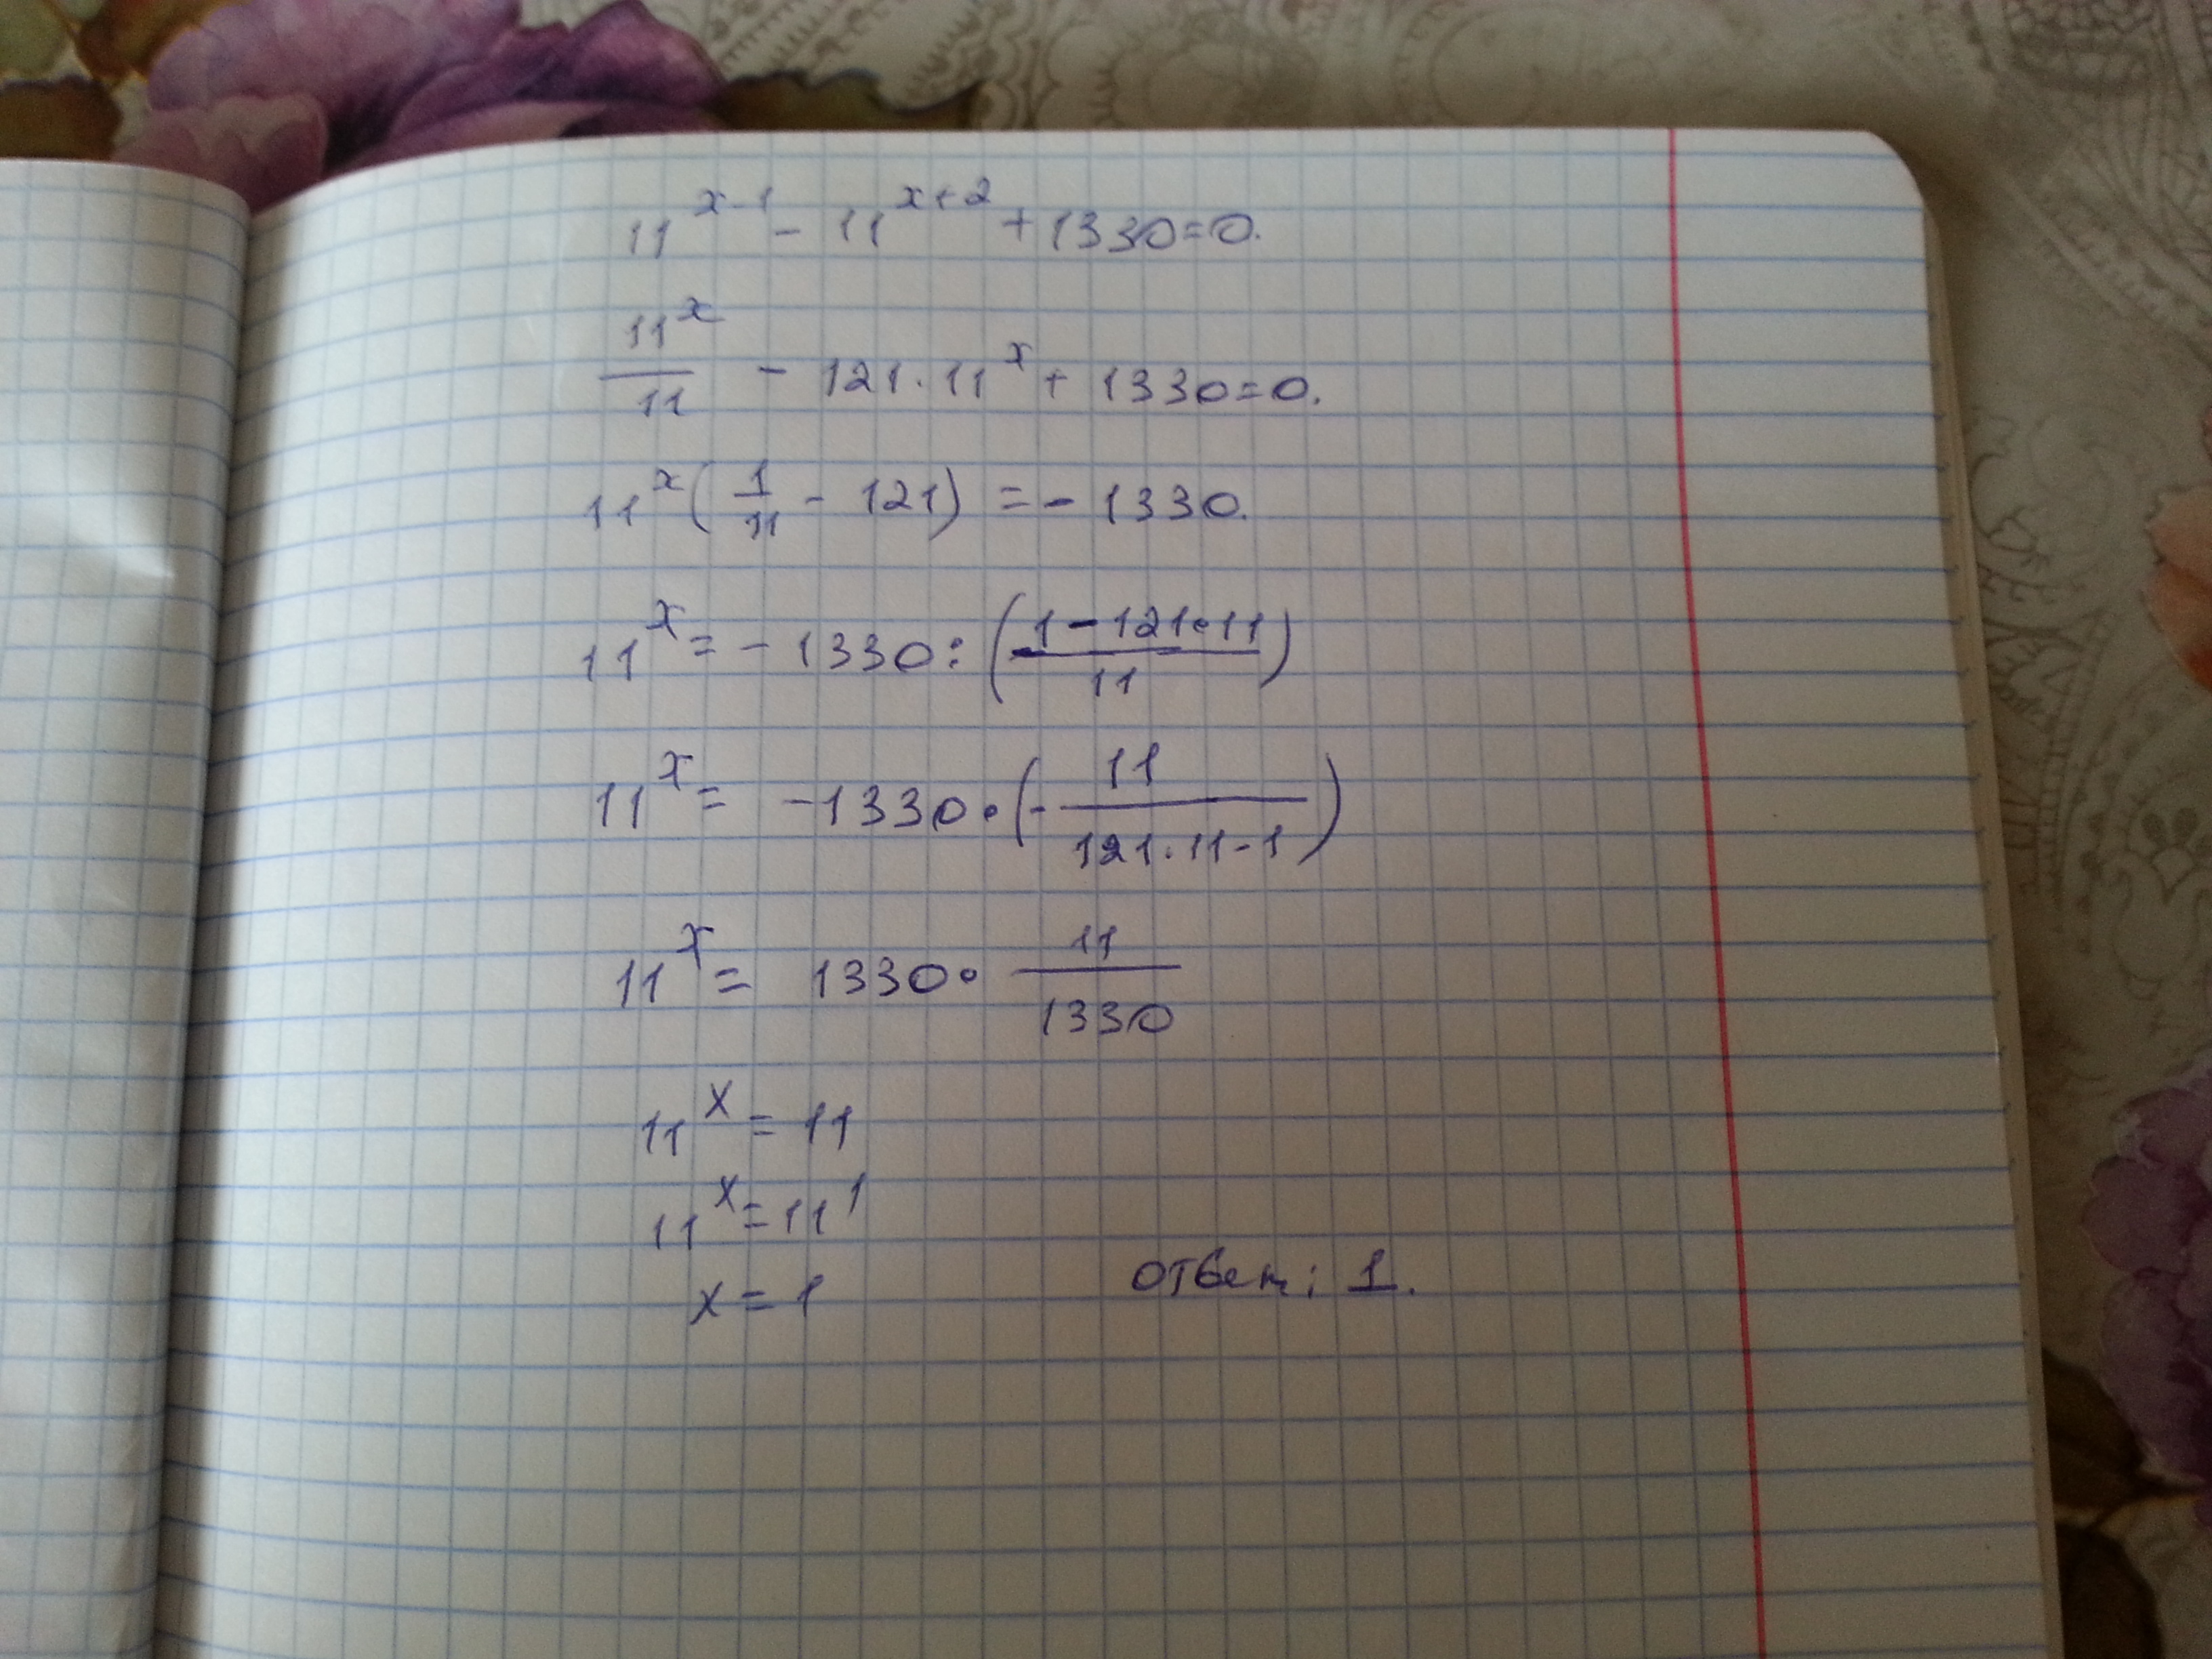 11^(x-1) - 11^(x+2) + 1330=0.
11^x/11 - 121·11^x + 1330=0.
11^x(1/11 - 121) = - 1330.
11^x = - 1330 : ((1-121·11)/11)
11^x = -1330·(-11/(121·11-1))
11^x = 1330· 11/1330
11^x = 11
11^x = 11^1
x = 1
ответ: 1.